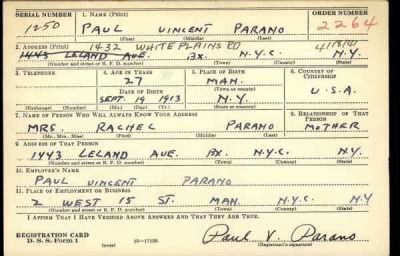 SERIAL NUMBER 1. NAME (Print) ORDER NUMBER
1250 PAUL VINCENT PARANO 2264
(First) (Middle) (Last)
2. ADDRESS (Print) 1432 WHITE PLAINS RD 4/18/41
1443 LELAND AVE. BX. N.Y.C. N.Y.
(Number and street or R. F. D. number) (Town) (County) (State)
3. TELEPHONE 4. AGE IN YEARS 5. PLACE OF BIRTH 6. COUNTRY OF CITIZENSHIP
27 MAN.
DATE OF BIRTH (Town or county)
SEPT. 19 1913 N.Y. U.S.A.
(Exchange) (Number) (Mo.) (Day) (Yr.) (State or country)
7. NAME OF PERSON WHO WILL ALWAYS KNOW YOUR ADDRESS 8. RELATIONSHIP OF THAT PERSON
MRS. RACHEL PARANO MOTHER
(Mr., Mrs., Miss) (First) (Middle) (Last)
9. ADDRESS OF THAT PERSON
1443 LELAND AVE. BX N.Y.C. N.Y.
(Number and street or R. F. D. number) (Town) (County) (State)
10. EMPLOYER'S NAME
PAUL VINCENT PARANO
11. PLACE OF EMPLOYMENT OR BUSINESS
2 WEST 15 ST. MAN. N.Y.C. N.Y
(Number and street or R. F. D. number) (Town) (County) (State)
I AFFIRM THAT I HAVE VERIFIED ABOVE ANSWERS AND THAT THEY ARE TRUE.
REGISTRATION CARD
D. S. S. Form 1 (over) 16—17105 Paul V. Parano
(Registrant's signature)